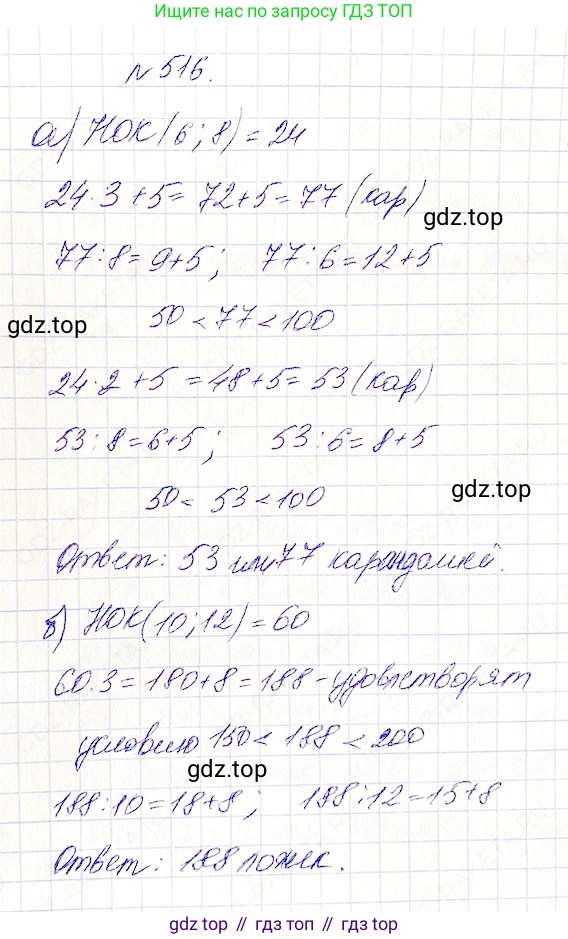 Ищите гдз по запросу ГДЗ ТОП
№ 516.
а) НОК (6; 8) = 24
24·3 + 5 = 72 + 5 = 77 (кар)
gdz.top
77 : 8 = 9 + 5; 77 : 6 = 12 + 5
50 < 77 < 100
gdz.top
24·2 + 5 = 48 + 5 = 53 (кар)
53 : 8 = 6 + 5; 53 : 6 = 8 + 5
50 = 53 < 100
gdz.top
Ответ: 53 или 77 карандашей.
б) НОК (10; 12) = 60
60·3 = 180 + 8 = 188 - удовлетворят
условию 150 < 188 < 200
gdz.top
188 : 10 = 18 + 8; 188 : 12 = 15 + 8
Ответ: 188 ложек.
gdz top // гдз топ // gdz.top